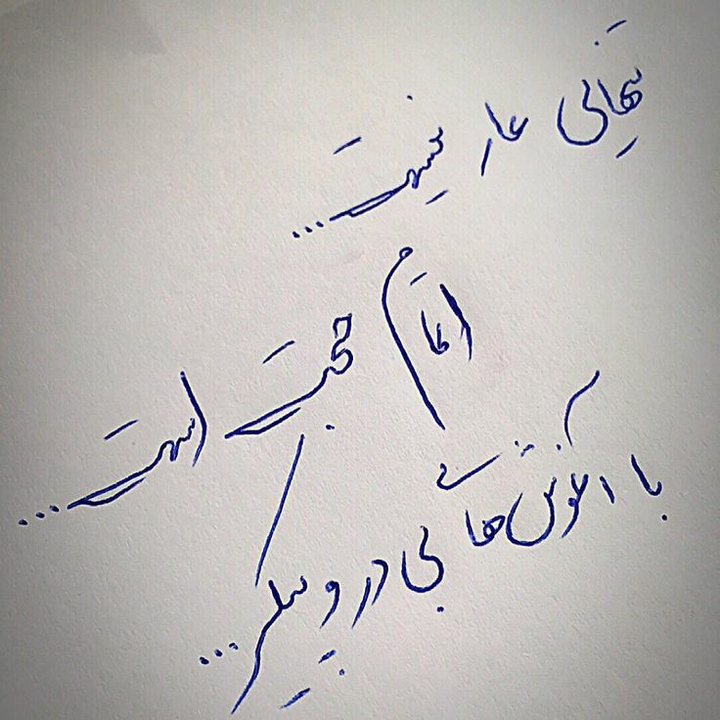 تنهائی عار نیست...
اتمام حجت است...
با آغوش های بی در و پیکر...